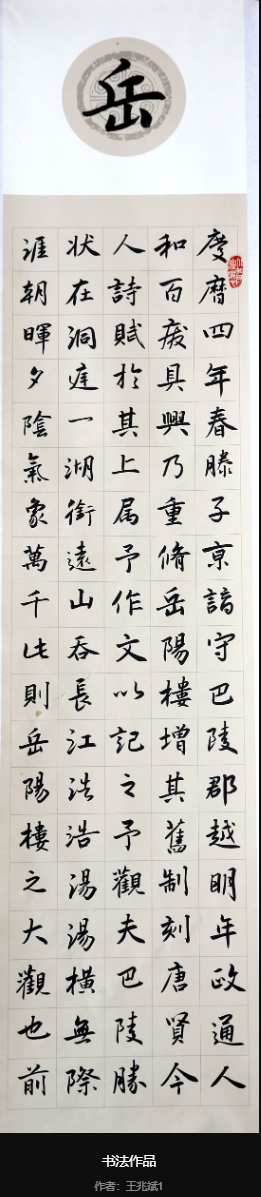 岳
慶曆四年春滕子京謫守巴陵郡越明年政通人
和百廢具興乃重脩岳陽樓增其舊制刻唐賢今
人詩賦於其上属予作文以記之予觀夫巴陵勝
状在洞庭一湖銜遠山吞長江浩浩湯湯横無際
涯朝暉夕陰氣象萬千此則岳陽樓之大觀也前
书法作品
作者：王兆斌1